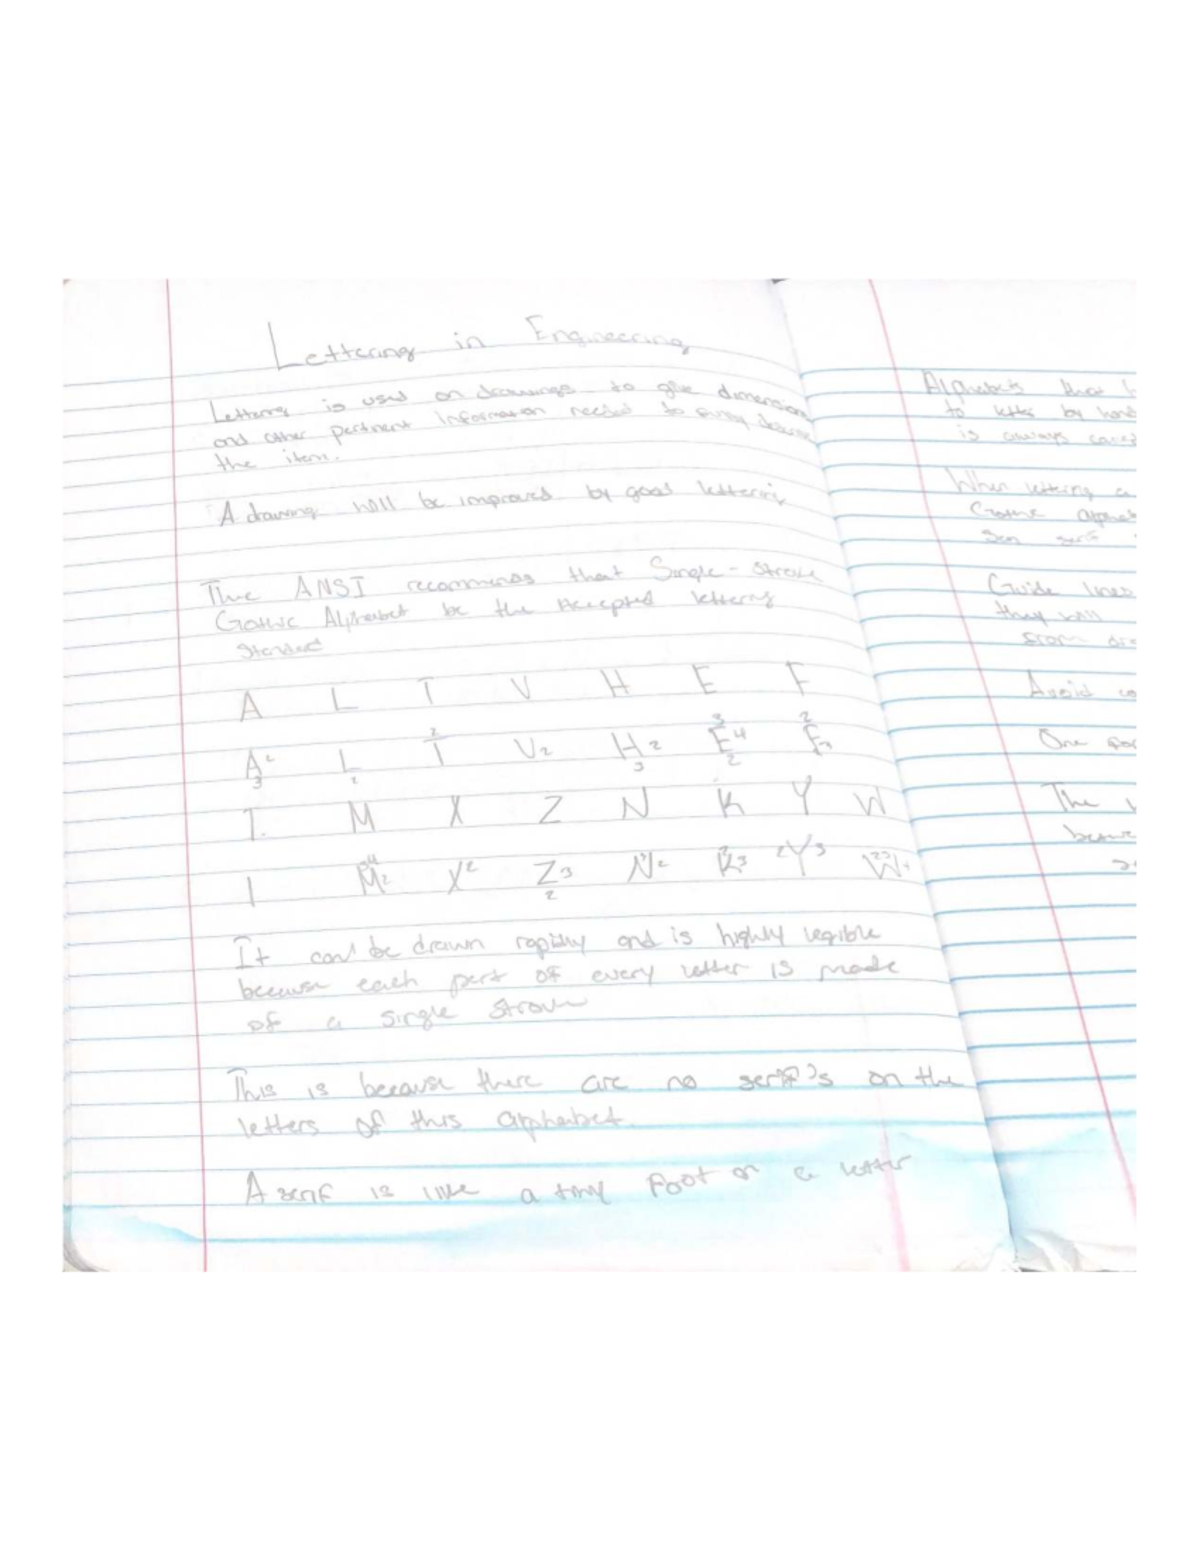 Lettering in Engineering
Lettering is used on drawings to give dimensions
and other pertinent information needed to fully describe
the item.
A drawing will be improved by good lettering
The ANSI recommends that Single-Stroke
Gothic Alphabet be the Accepted lettering
Standard
A L T V H E F
A 2 3 L 2 T 2 V 2 H 2 3 E 3 4 2 F 2 3
I M X Z N K Y W
I M 3 4 2 X 2 Z 3 2 N 2 K 3 2 Y 3 W 2 3 4
It can be drawn rapidly and is highly legible
because each part of every letter is made
of a single stroke
This is because there are no serif's on the
letters of this alphabet.
A serif is like a tiny foot on a letter
Alphabets that
to letter by hand
is always
When lettering a
Gothic
serif
Guide lines
they will
from
Avoid
One
The